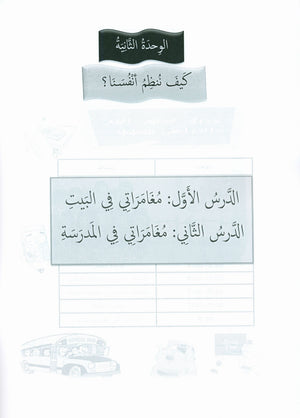 الوِحدَةُ الثَّانِيَةُ
كَيفَ نُنظِمُ أَنْفُسَنَا؟
الدَّرسُ الأَوَّل: مُغَامَرَاتِي فِي البَيتِ
الدَّرسُ الثَّانِي: مُغَامَرَاتِي فِي المَدرَسَةِ